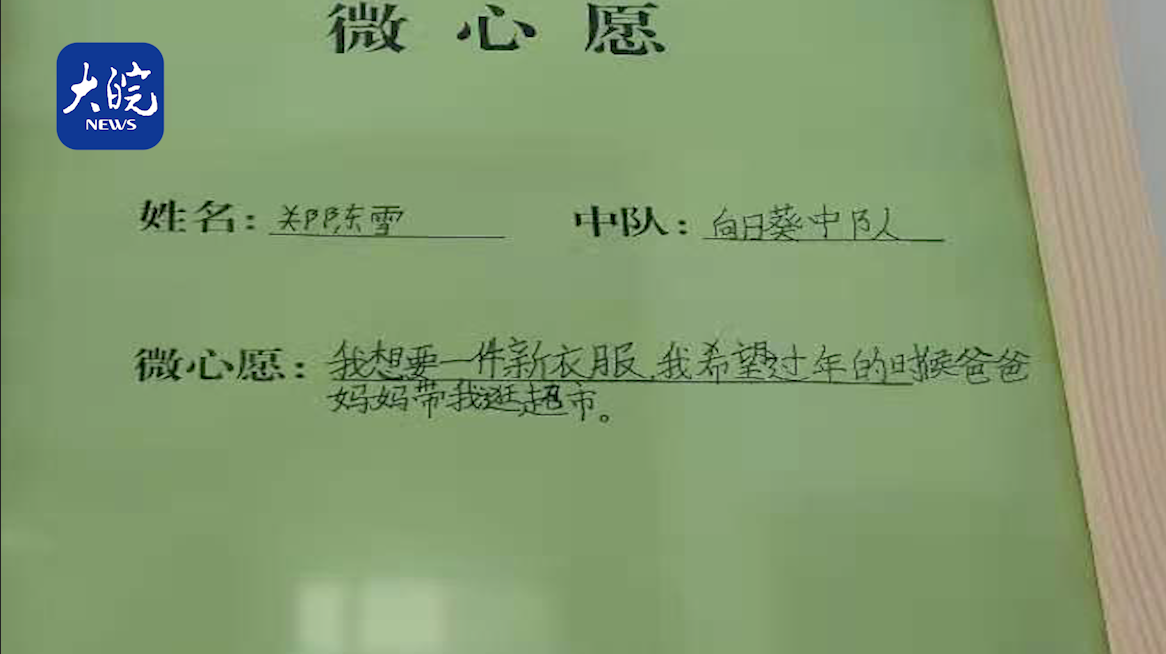 微心愿
大皖
NEWS
姓名：郑陈雪 中队：向日葵中队
微心愿：我想要一件新衣服，我希望过年的时候爸爸
妈妈带我逛超市。